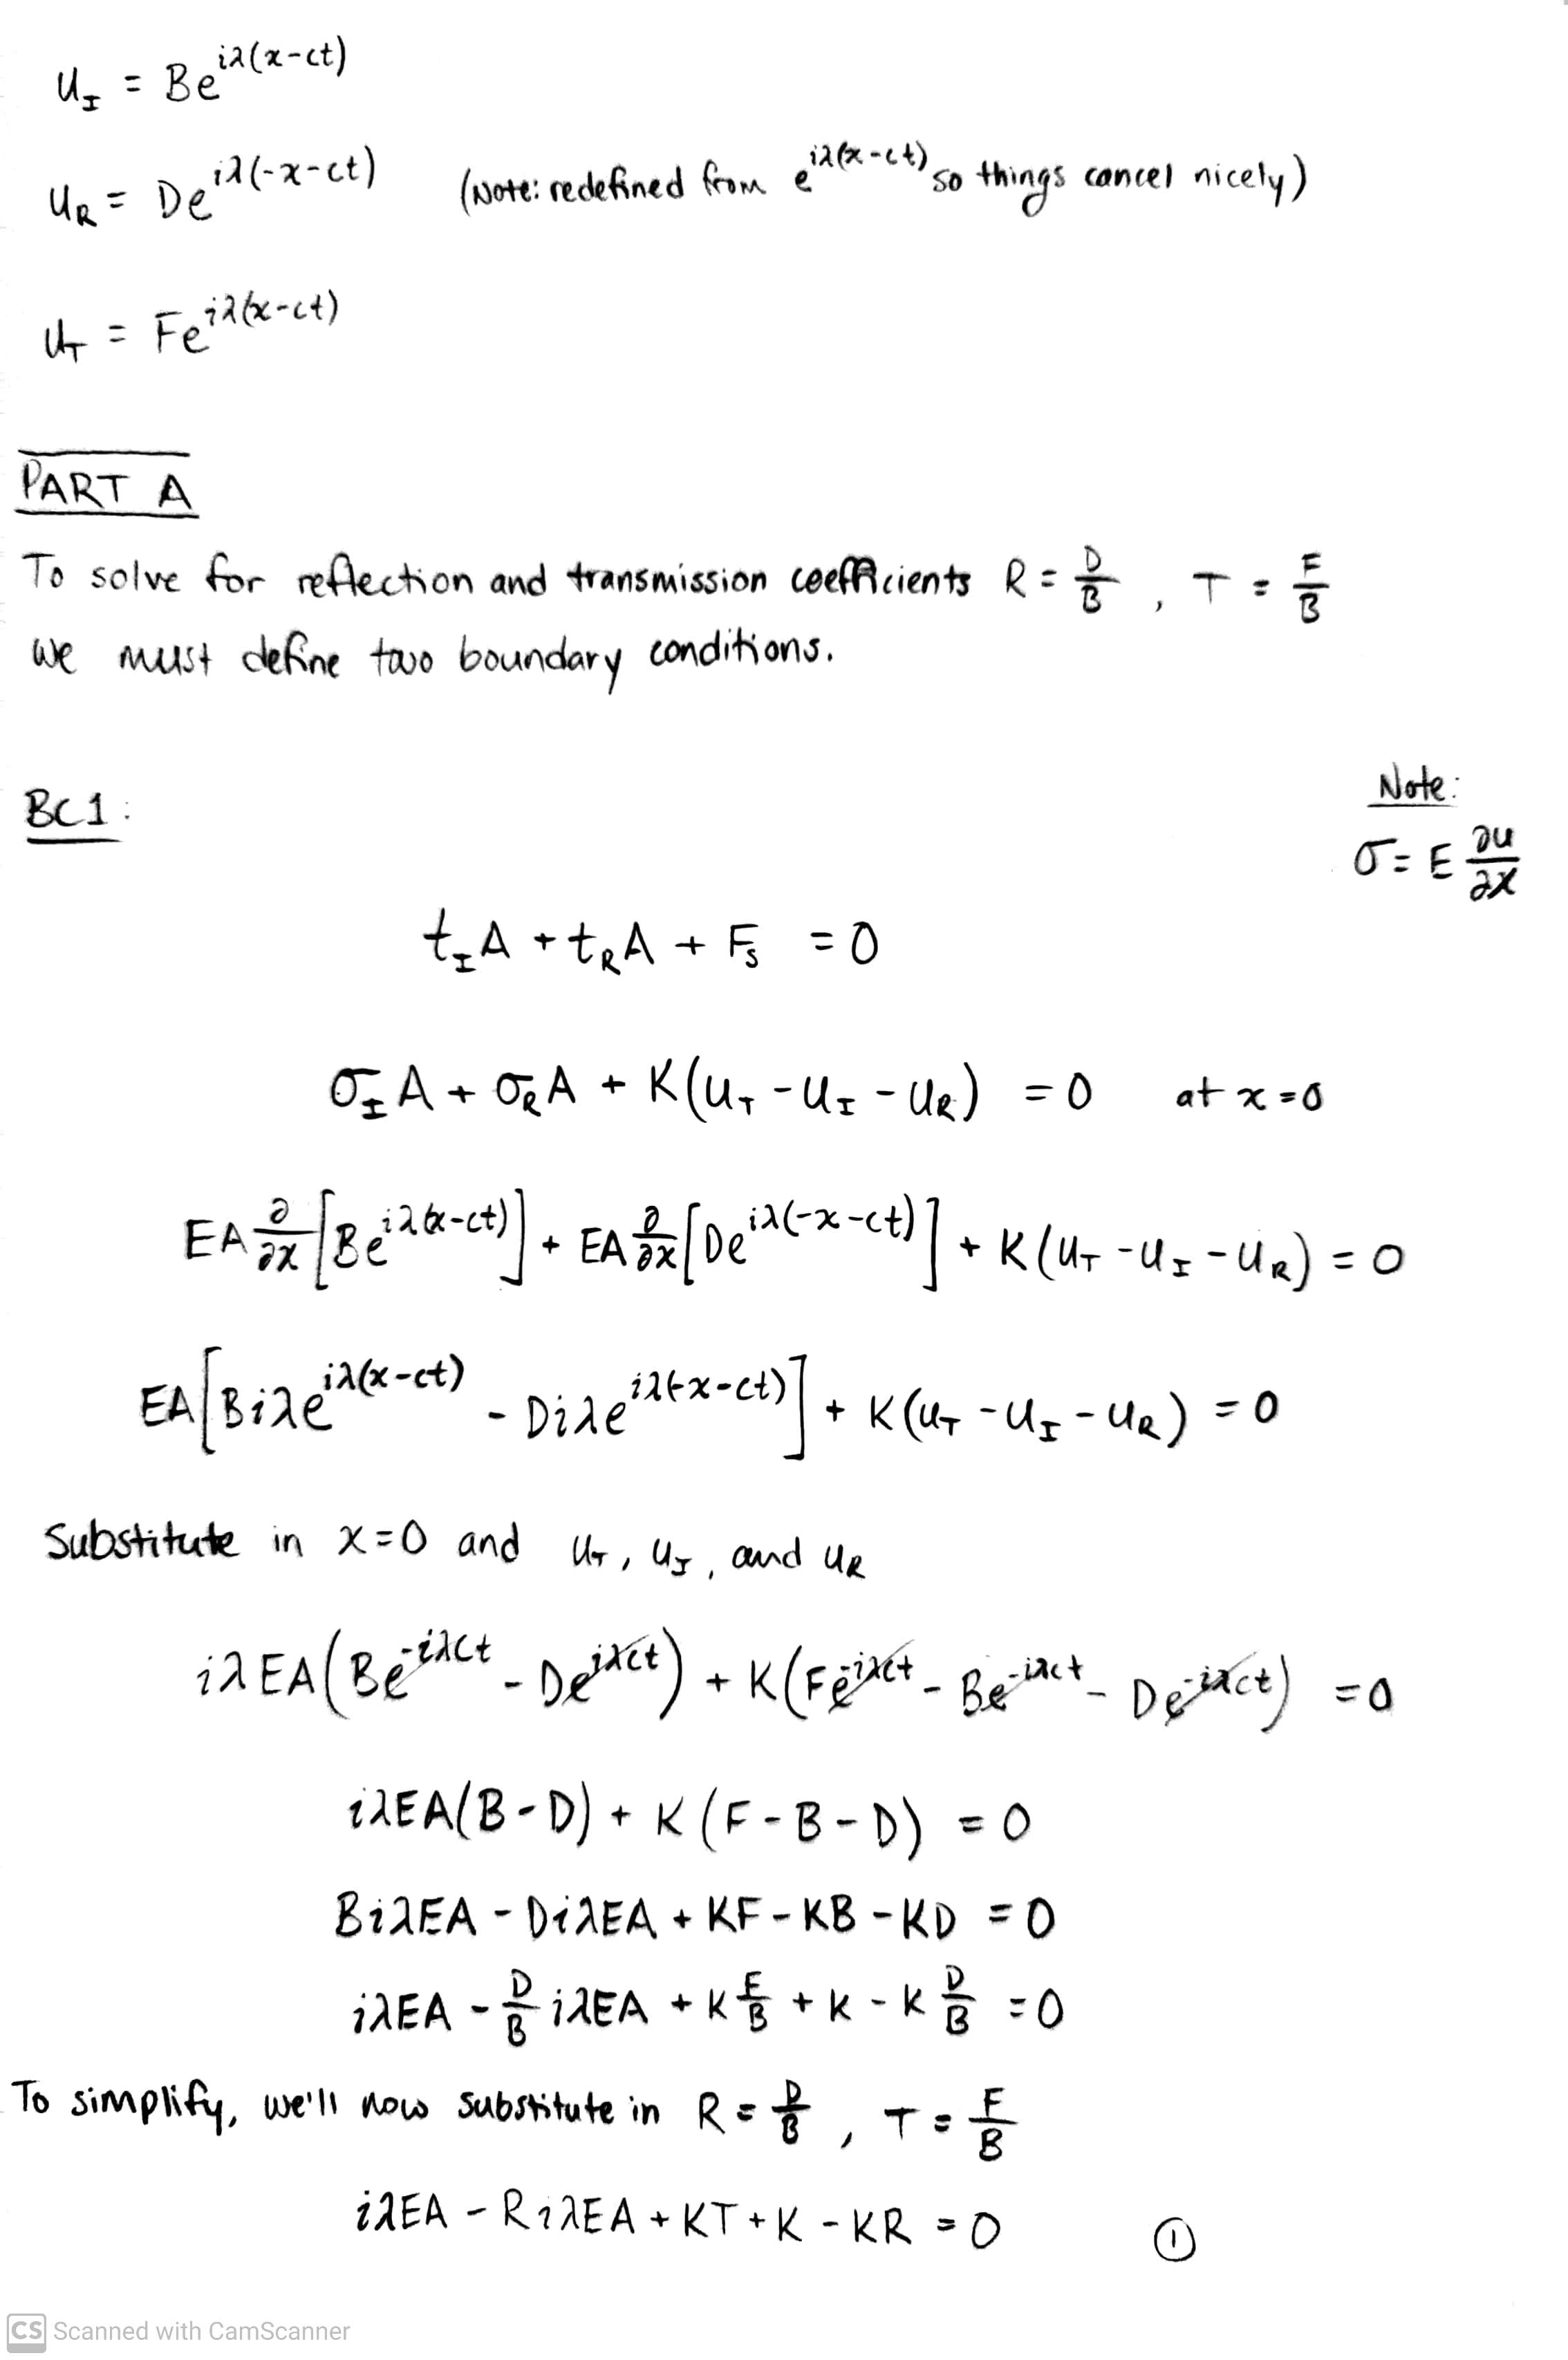 u_I = Be^{iλ(x-ct)}
u_R = De^{iλ(-x-ct)} (Note: redefined from e^{iλ(x-ct)} so things cancel nicely)
u_T = Fe^{iλ(x-ct)}
PART A
To solve for reflection and transmission coefficients R = D/B , T = F/B
we must define two boundary conditions.
BC1:
Note:
σ = E ∂u/∂x
t_I A + t_R A + F_s = 0
σ_I A + σ_R A + K(u_T - u_I - u_R) = 0 at x=0
EA ∂/∂x [Be^{iλ(x-ct)}] + EA ∂/∂x [De^{iλ(-x-ct)}] + K(u_T - u_I - u_R) = 0
EA[Biλe^{iλ(x-ct)} - Diλe^{iλ(-x-ct)}] + K(u_T - u_I - u_R) = 0
Substitute in x=0 and u_T, u_I, and u_R
iλEA(Be^{-iλct} - De^{-iλct}) + K(Fe^{-iλct} - Be^{-iλct} - De^{-iλct}) = 0
iλEA(B-D) + K(F-B-D) = 0
BiλEA - DiλEA + KF - KB - KD = 0
iλEA - D/B iλEA + K F/B + K - K D/B = 0
To simplify, we'll now substitute in R = D/B , T = F/B
iλEA - RiλEA + KT + K - KR = 0 ①
CS Scanned with CamScanner